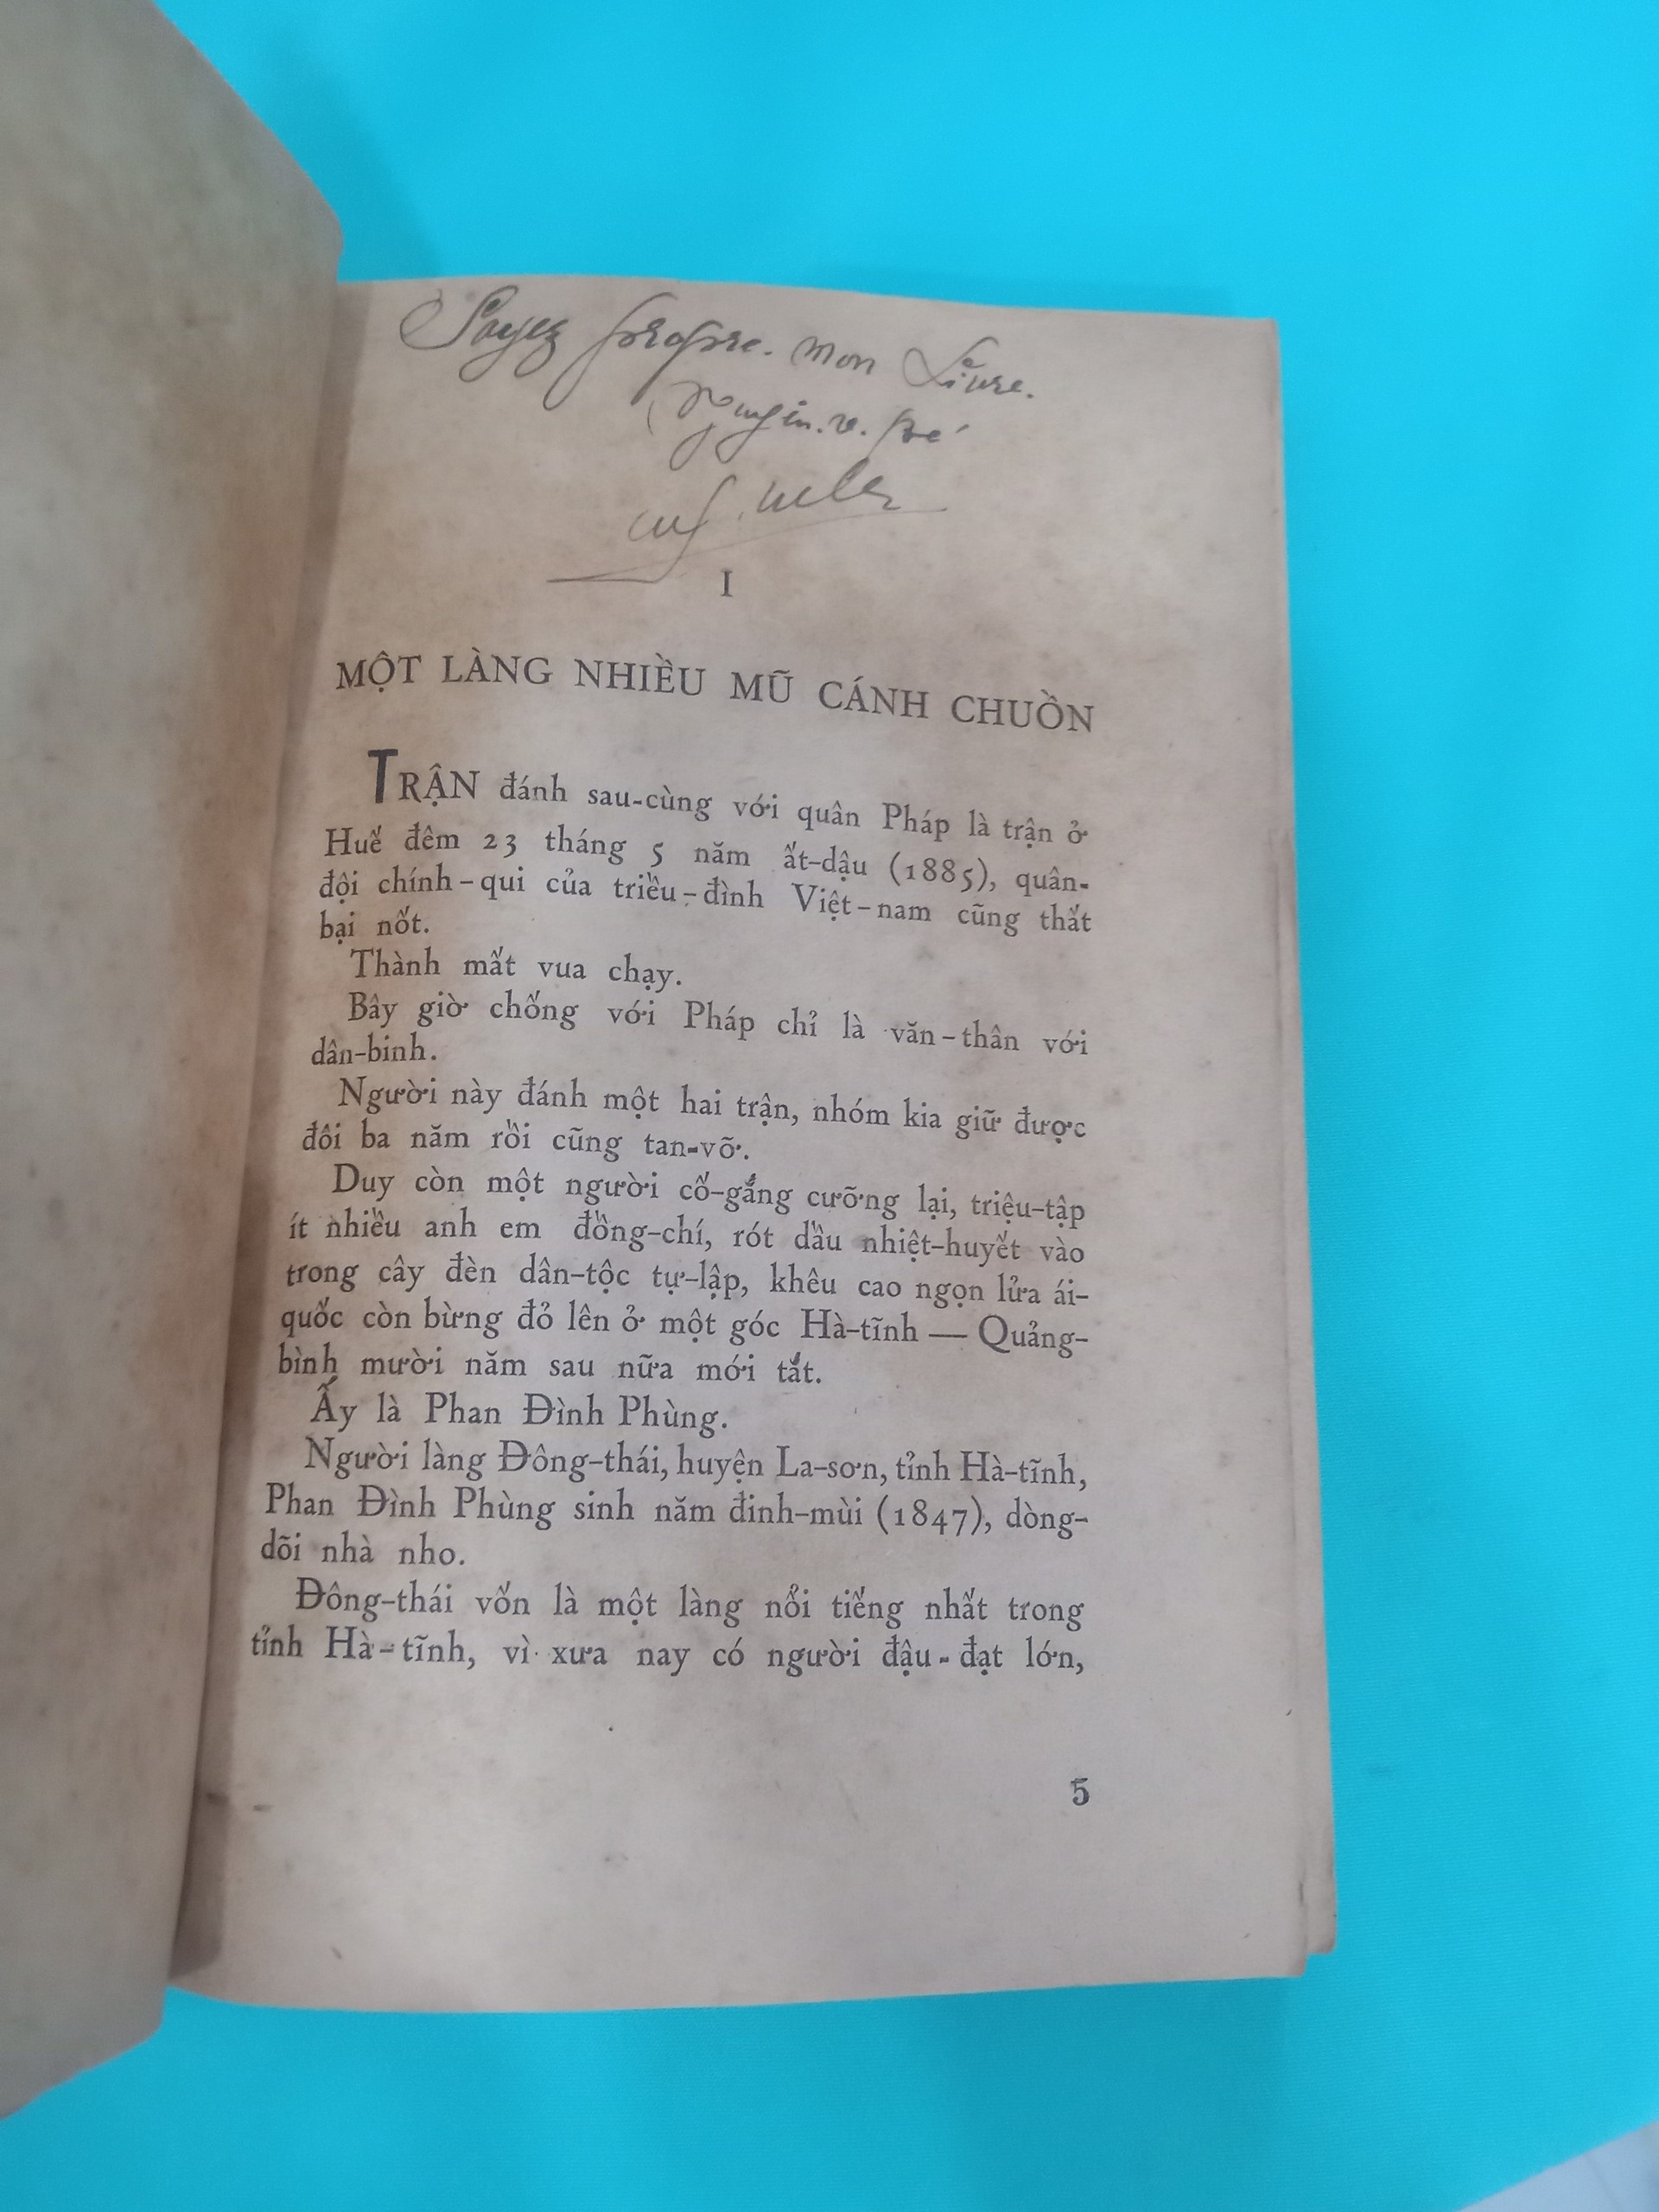 Soyez propre. mon Livre.
I
MỘT LÀNG NHIỀU MŨ CÁNH CHUỒN
TRẬN đánh sau-cùng với quân Pháp là trận ở
Huế đêm 23 tháng 5 năm ất-dậu (1885), quân-
đội chính-qui của triều-đình Việt-nam cũng thất
bại nốt.
Thành mất vua chạy.
Bây giờ chống với Pháp chỉ là văn-thân với
dân-binh.
Người này đánh một hai trận, nhóm kia giữ được
đôi ba năm rồi cũng tan-vỡ.
Duy còn một người cố-gắng cưỡng lại, triệu-tập
ít nhiều anh em đồng-chí, rót dầu nhiệt-huyết vào
trong cây đèn dân-tộc tự-lập, khêu cao ngọn lửa ái-
quốc còn bừng đỏ lên ở một góc Hà-tĩnh — Quảng-
bình mười năm sau nữa mới tắt.
Ấy là Phan Đình Phùng.
Người làng Đông-thái, huyện La-sơn, tỉnh Hà-tĩnh,
Phan Đình Phùng sinh năm đinh-mùi (1847), dòng-
dõi nhà nho.
Đông-thái vốn là một làng nổi tiếng nhất trong
tỉnh Hà-tĩnh, vì xưa nay có người đậu-đạt lớn,
5